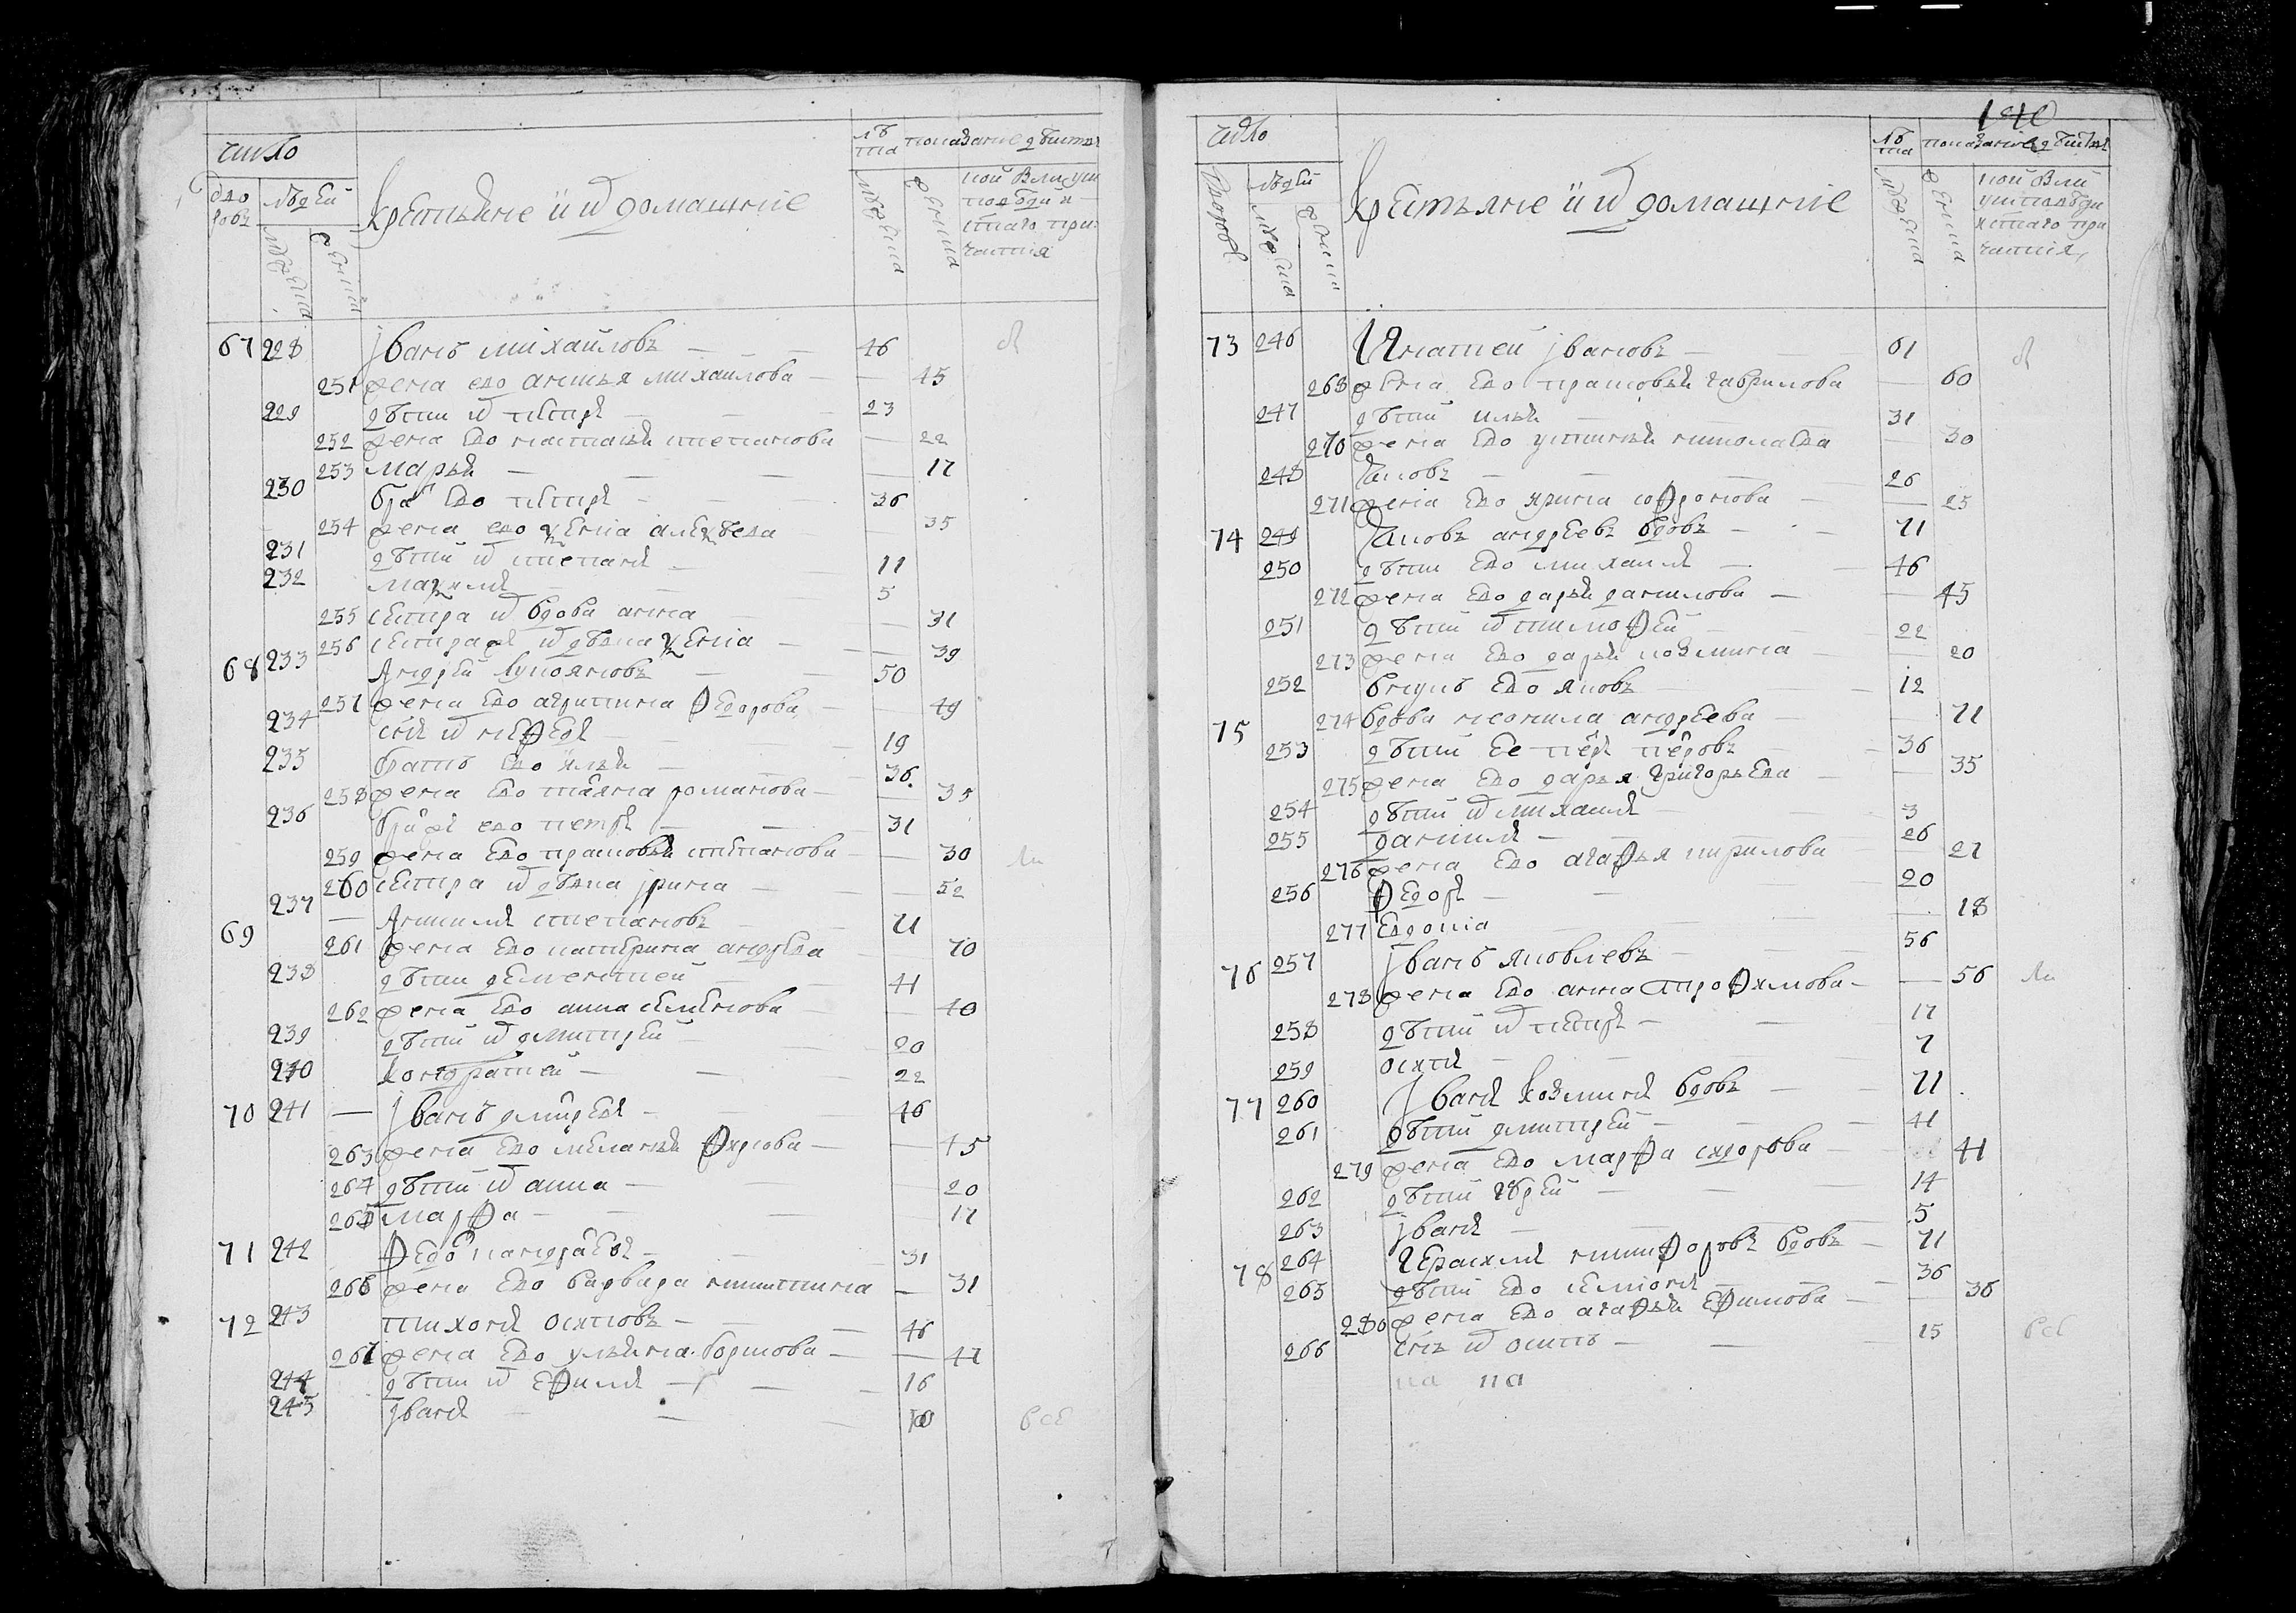 число
дво ровъ
людей
мужеска
женска
крестьяне и их домашние
лѣ та
мужеска
женска
показание дѣйстви
кой
исповѣди и
стаго при
частия
67 228 Иванъ михаиловъ — — 46
251 жена ево анисья михаилова — — 45
229 дѣти их петръ — — 23
252 жена ево настасья степанова — 22
253 марья — — — 17
230 братъ ево петръ — — 36
254 жена ево ксения алексѣева — 35
231 дѣти их степанъ — — 11
232 максимъ — — 5
255 сестра их вдова анна — — 31
256 сестра жъ их дѣвка ксения — — 39
68 233 Андрей лукояновъ — — 50
257 жена ево агрипина федорова — — 49
234 снъ их нефедъ — — 19
235 братъ ево илья — — 36
258 жена ево татьяна романова — — 35
236 братъ ево петръ — — 31
259 жена ево прасковья степанова — — 30
260 сестра их дѣвка ирина — — 52
69 237 — Аникимъ степановъ — — 71
261 жена ево катерина андреева — 70
238 дѣти дементей — 41
262 жена ево анна семенова — — 40
239 дѣти их дмитрей — — 20
240 кондратей — — — 22
70 241 — Иванъ дмитреевъ — — 46
263 жена ево меланья — — 45
264 дѣти их анна — — — 20
265 марфа — — — 17
71 242 Федоръ кондратьевъ — — 31
266 жена ево варвара никитина — 31
72 243 тихонъ осиповъ — — 46
267 жена ево ульяна — — 47
244 дѣти их ефимъ — — — 16
245 иванъ — — —
всѣ
140
число
дворовъ
людей
мужеска
женска
крестьяне и их домашние
лѣ та
мужеска
женска
показание дѣйстви
кой
исповѣди
и стаго при
частия
73 246 Игнатей ивановъ — — 61
268 жена ево прасковья гаврилова — 60
247 дѣти илья — 31
270 жена ево устинья николаева — 30
248 яковъ — — — 26
271 жена ево ирина софронова — — 25
74 249 Яковъ андреевъ вдовъ — — 71
250 дѣти ево михаилъ — — 46
272 жена ево дарья данилова — — 45
251 дѣти их тимофей — 22
273 жена ево дарья козмина — — 20
252 внукъ ево яковъ — — 12
75 274 вдова неонила андреева — — 71
253 дѣти ее петръ петровъ — 36
275 жена ево дарья григорьева — — 35
254 дѣти их михаилъ — 3
255 данилъ — — — 26
276 жена ево агафья кирилова — — 27
256 федоръ — — — 20
277 евдокия — — — 18
76 257 Иванъ яковлевъ — 56
278 жена ево анна трофимова — — 56
258 дѣти их петръ — — 17
259 осипъ — — — 7
77 260 Иванъ козминъ вдовъ — — 71
261 дѣти дмитрей — — — 41
279 жена ево марфа сидорова — 41
262 дѣти — — — 14
263 иванъ — — — 5
78 264 Герасимъ никифоровъ вдовъ — 71
265 дѣти ево семионъ — — — 36
280 жена ево агафья ефимова — — 36
266 снъ их осипъ — — 15
всѣ